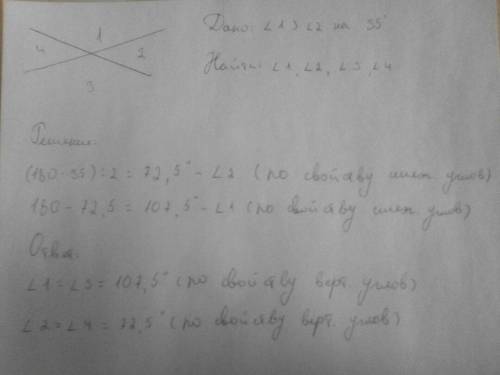 1
4 2
3
Дано: ∠1 > ∠2 на 35°
Найти: ∠1, ∠2, ∠3, ∠4
Решение:
(180-35):2 = 72,5° - ∠2 (по свойству смеж. углов)
180 - 72,5 = 107,5° - ∠1 (по свойству смеж. углов)
Ответ:
∠1 = ∠3 = 107,5° (по свойству верт. углов)
∠2 = ∠4 = 72,5° (по свойству верт. углов)